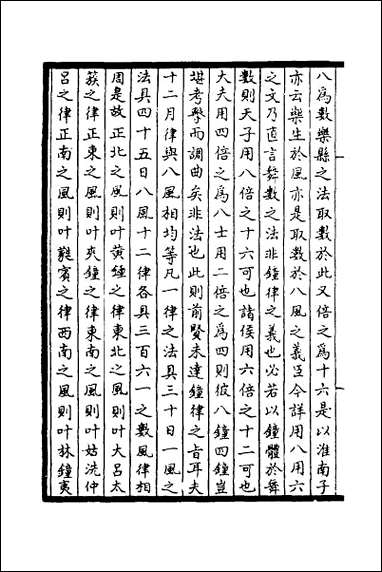 八爲數樂縣之法取數於此又倍之爲十六是以淮南子
亦云樂生於風亦是取數於八風之義臣今詳用八用六
之文乃直言舞數之法非鐘律之義也必若以鐘體於舞
數則天子用八倍之十六可也諸侯用六倍之十二可也
大夫用四倍之爲八士用二倍之爲四則彼八鐘四鐘豈
堪考擊而調曲矣非法也此則前賢未達鐘律之旨耳夫
十二月律與八風相均等凡一律之法具三十日一風之
法具四十五日八風十二律各具三百六一之數風律相
周是故正北之風則叶黃鍾之律東北之風則叶大呂太
蔟之律正東之風則叶夾鐘之律東南之風則叶姑洗仲
呂之律正南之風則叶蕤賓之律西南之風則叶林鐘夷